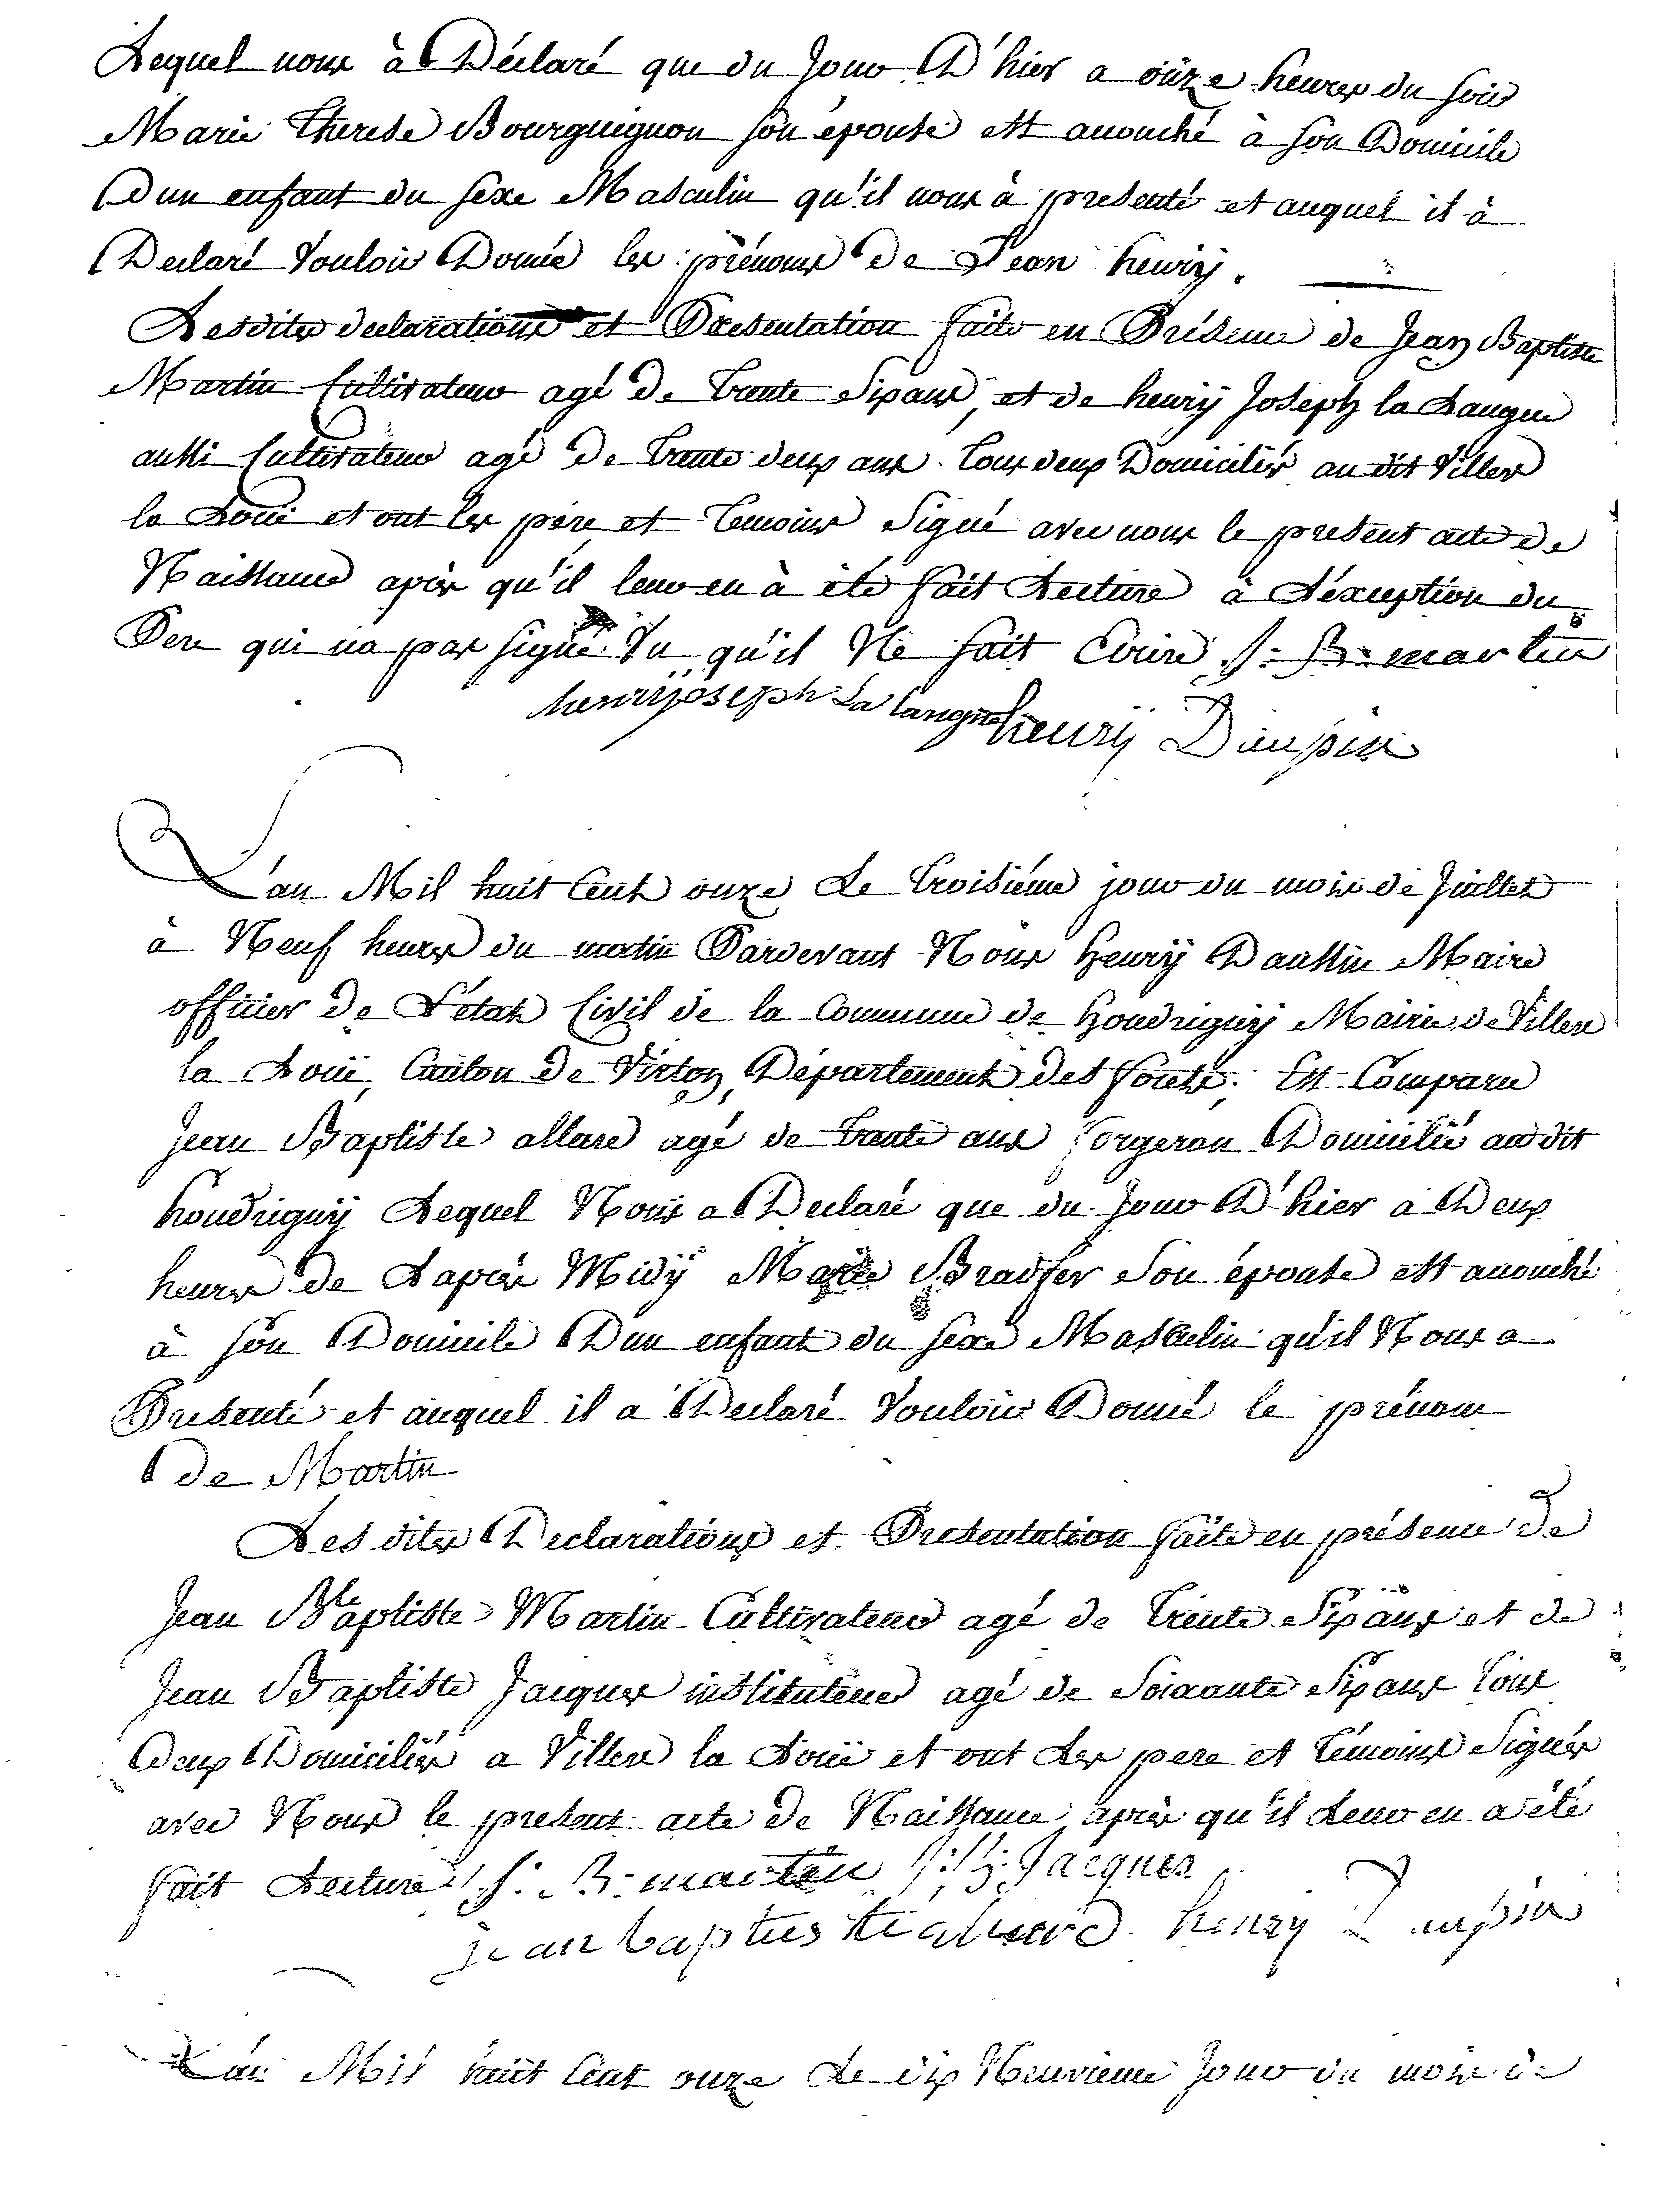 Lequel nous à Déclaré que du Jour D'hier a onze heures du soir
Marie Therese Bourguignon son épouse est acouché à son Domicile
Dun enfant du sexe Masculin qu'il nous à presenté et auquel il à
Declaré Vouloir Donné les prénoms de Jean henrÿ.
Lesdites declarations et Presentation faite en Présence de Jean Baptiste
Martin Cultivateur agé de Trente Sixans, et de henrÿ Joseph la Langue
aussi Cultivateur agé de Trente deux ans. Tous deux Domiciliés au dit Villers
la Loüe et ont les père et Temoins Signé avec nous le present acte de
Naissance après qu'il leur en à été fait Lecture à L'éxception du
Pere qui na pas signé Vu qu'il Ne sait Ecrire J: B: martin
henrijoseph La langue henrÿ
L'an Mil huit Cent onze Le Troisiéme jour du mois de Juillet
à Neuf heures du matin Pardevant Nous HenrÿMaire
officier de L'état Civil de la Commune de Houdrignÿ Mairie de Villers
la Loüe, Canton de Virton, Département des Forets; Est Comparu
Jean Baptiste allard agé de Trente ans forgeron Domicilié audit
houdrignÿ Lequel Nous a Declaré que du Jour D'hier a Deux
heures de Laprès Midÿ Marie Bradfer Son épouse est acouché
à son Domicile Dun enfant du sexe Masculin qu'il Nous a
Presenté et auquel il a Declaré Vouloir Donné le prénom
de Martin
Les dites Declarations et Presentation faite en présence de
Jean Baptiste Martin Cultivateur agé de Trente Sixans et de
Jean Baptiste Jacques instituteur agé de Soixante Sixans Tous
Deux Domiciliés a Villers la Loüe et ont Les pere et Témoins Signés
avec Nous le present acte de Naissance après qu'il Leur en a été
fait Lecture J: B: martin J: B: Jacques
jean baptiste henry
L'an Mil huit Cent onze Le dix Neuvieme Jour du mois de